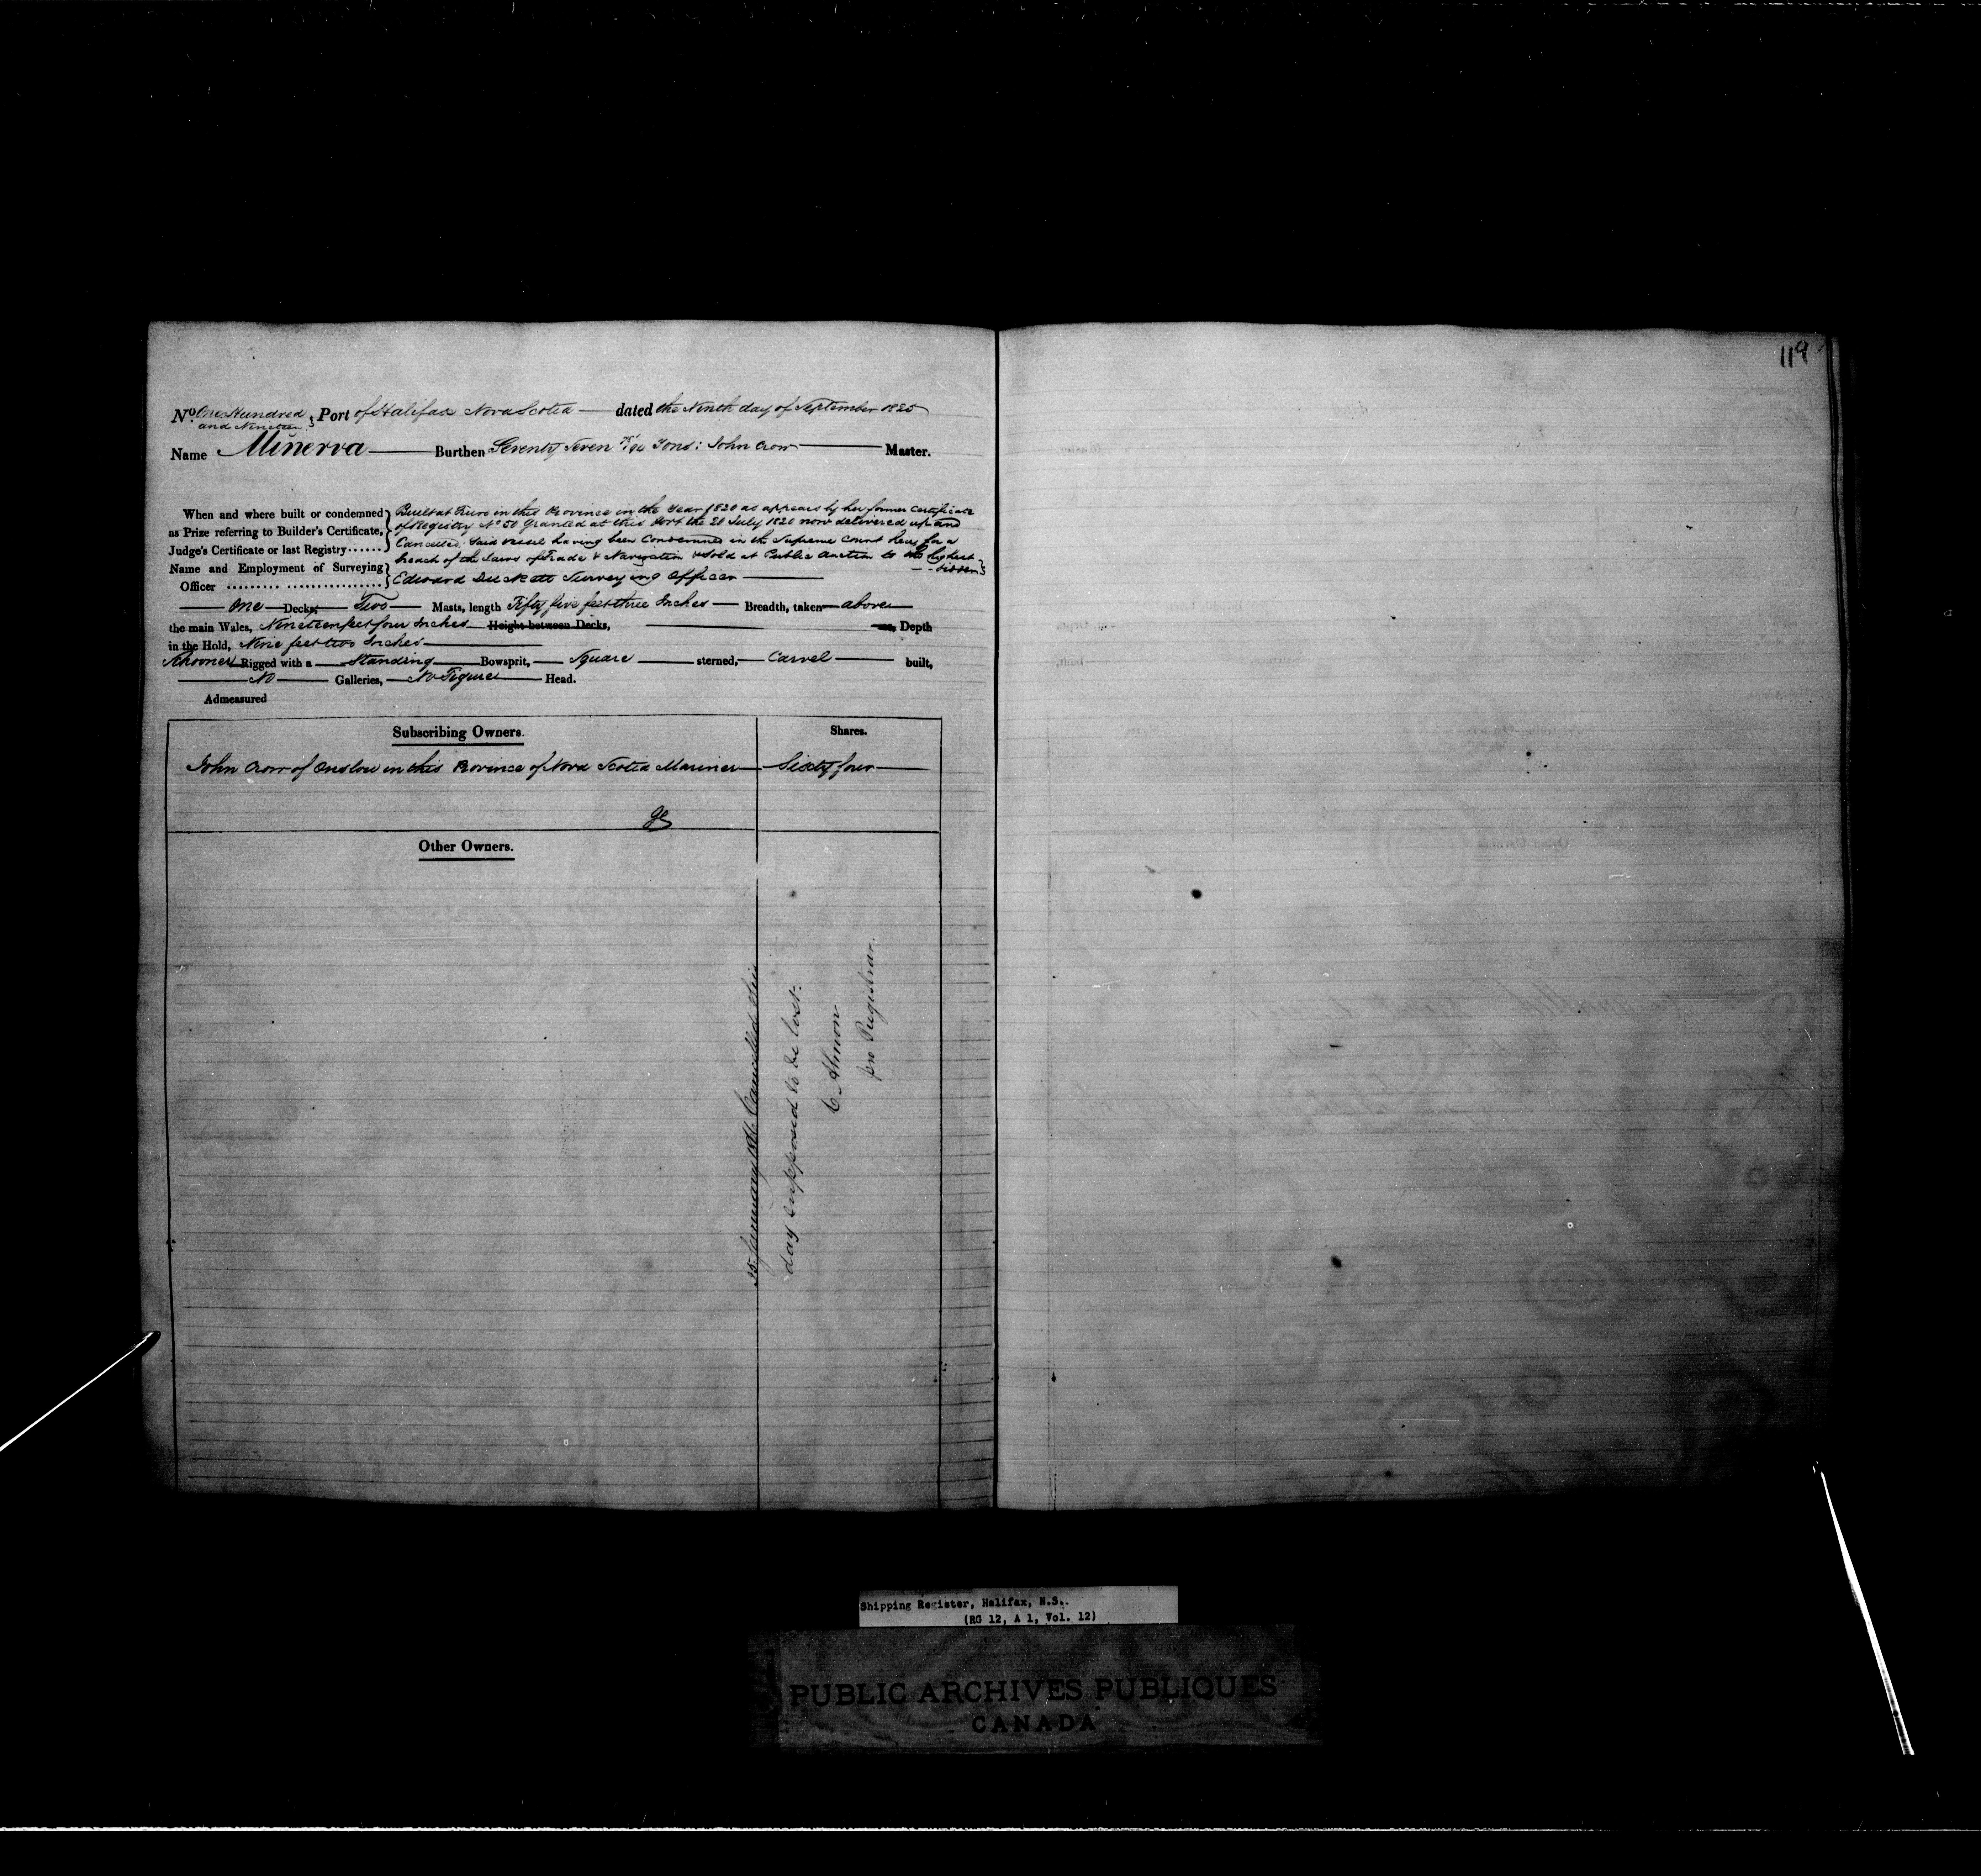 119
No. One Hundred and Nineteen } Port of Halifax Nova Scotia — dated the Ninth day of September 1825
Name Minerva — Burthen Seventy Seven 75/94 Tons: John Crow — Master.
When and where built or condemned } Built at Truro in this Province in the Year 1820 as appears by her former Certificate
as Prize referring to Builder's Certificate, of Registry No 50 Granted at this Port the 20 July 1820 now delivered up and
Judge's Certificate or last Registry...... Cancelled. Said Vessel having been Condemned in the Supreme Court here for a
breach of the Laws of Trade & Navigation & Sold at Public Auction to the highest
bidder }
Name and Employment of Surveying } Edward Duckett Surveying Officer —
Officer ......... .................
— One — Decks, — Two — Masts, length Fifty five feet three Inches — Breadth, taken — above
the main Wales, Nineteen feet four Inches — Height between Decks, — Depth
in the Hold, Nine feet two Inches —
Schooner Rigged with a — Standing — Bowsprit, — Square — sterned, — Carvel — built,
— No — Galleries, — No Figure — Head.
Admeasured
Subscribing Owners. Shares.
John Crow of Onslow in this Province of Nova Scotia Mariner — Sixty four —
Other Owners.
January Cancelled this
day supposed to be lost.
C Almon
pro Registrar.
Shipping Register, Halifax, N.S..
(RG 12, A 1, Vol. 12)
PUBLIC ARCHIVES PUBLIQUES
CANADA